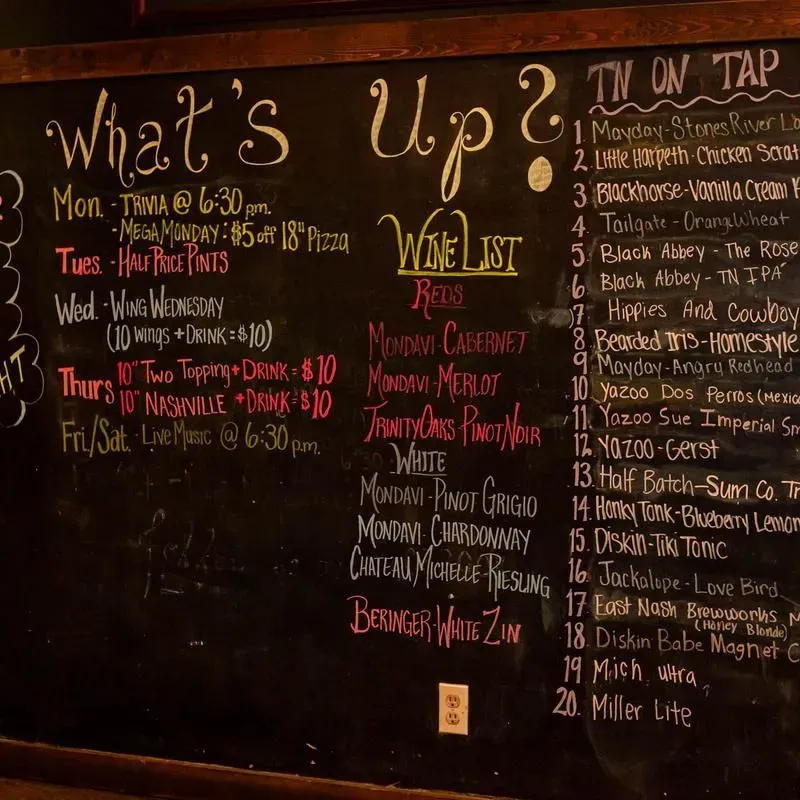 What's Up?
Mon. - TRIVIA @ 6:30 p.m.
- MEGA MONDAY: $5 off 18" Pizza
Tues. - HALF PRICE PINTS
Wed. - WING WEDNESDAY
(10 WINGS + DRINK = $10)
Thurs 10" TWO TOPPING + DRINK = $10
10" NASHVILLE + DRINK = $10
Fri./Sat. - LIVE MUSIC @ 6:30 p.m.
WINE LIST
REDS
MONDAVI - CABERNET
MONDAVI - MERLOT
TRINITY OAKS PINOT NOIR
WHITE
MONDAVI - PINOT GRIGIO
MONDAVI - CHARDONNAY
CHATEAU MICHELLE - RIESLING
BERINGER - WHITE ZIN
TN ON TAP
1. Mayday - Stones River
2. Little Harpeth - Chicken Scrat
3. Blackhorse - Vanilla Cream
4. Tailgate - Orange Wheat
5. Black Abbey - The Rose
6. Black Abbey - TN IPA
7. Hippies And Cowboy
8. Bearded Iris - Homestyle
9. Mayday - Angry Redhead
10. Yazoo Dos Perros (Mexic
11. Yazoo Sue Imperial Sm
12. Yazoo - Gerst
13. Half Batch - Sum Co. Tr
14. Honky Tonk - Blueberry Lemon
15. Diskin - Tiki Tonic
16. Jackalope - Love Bird
17. East Nash Brewworks
(Honey Blonde)
18. Diskin Babe Magnet C
19. Mich ultra
20. Miller Lite